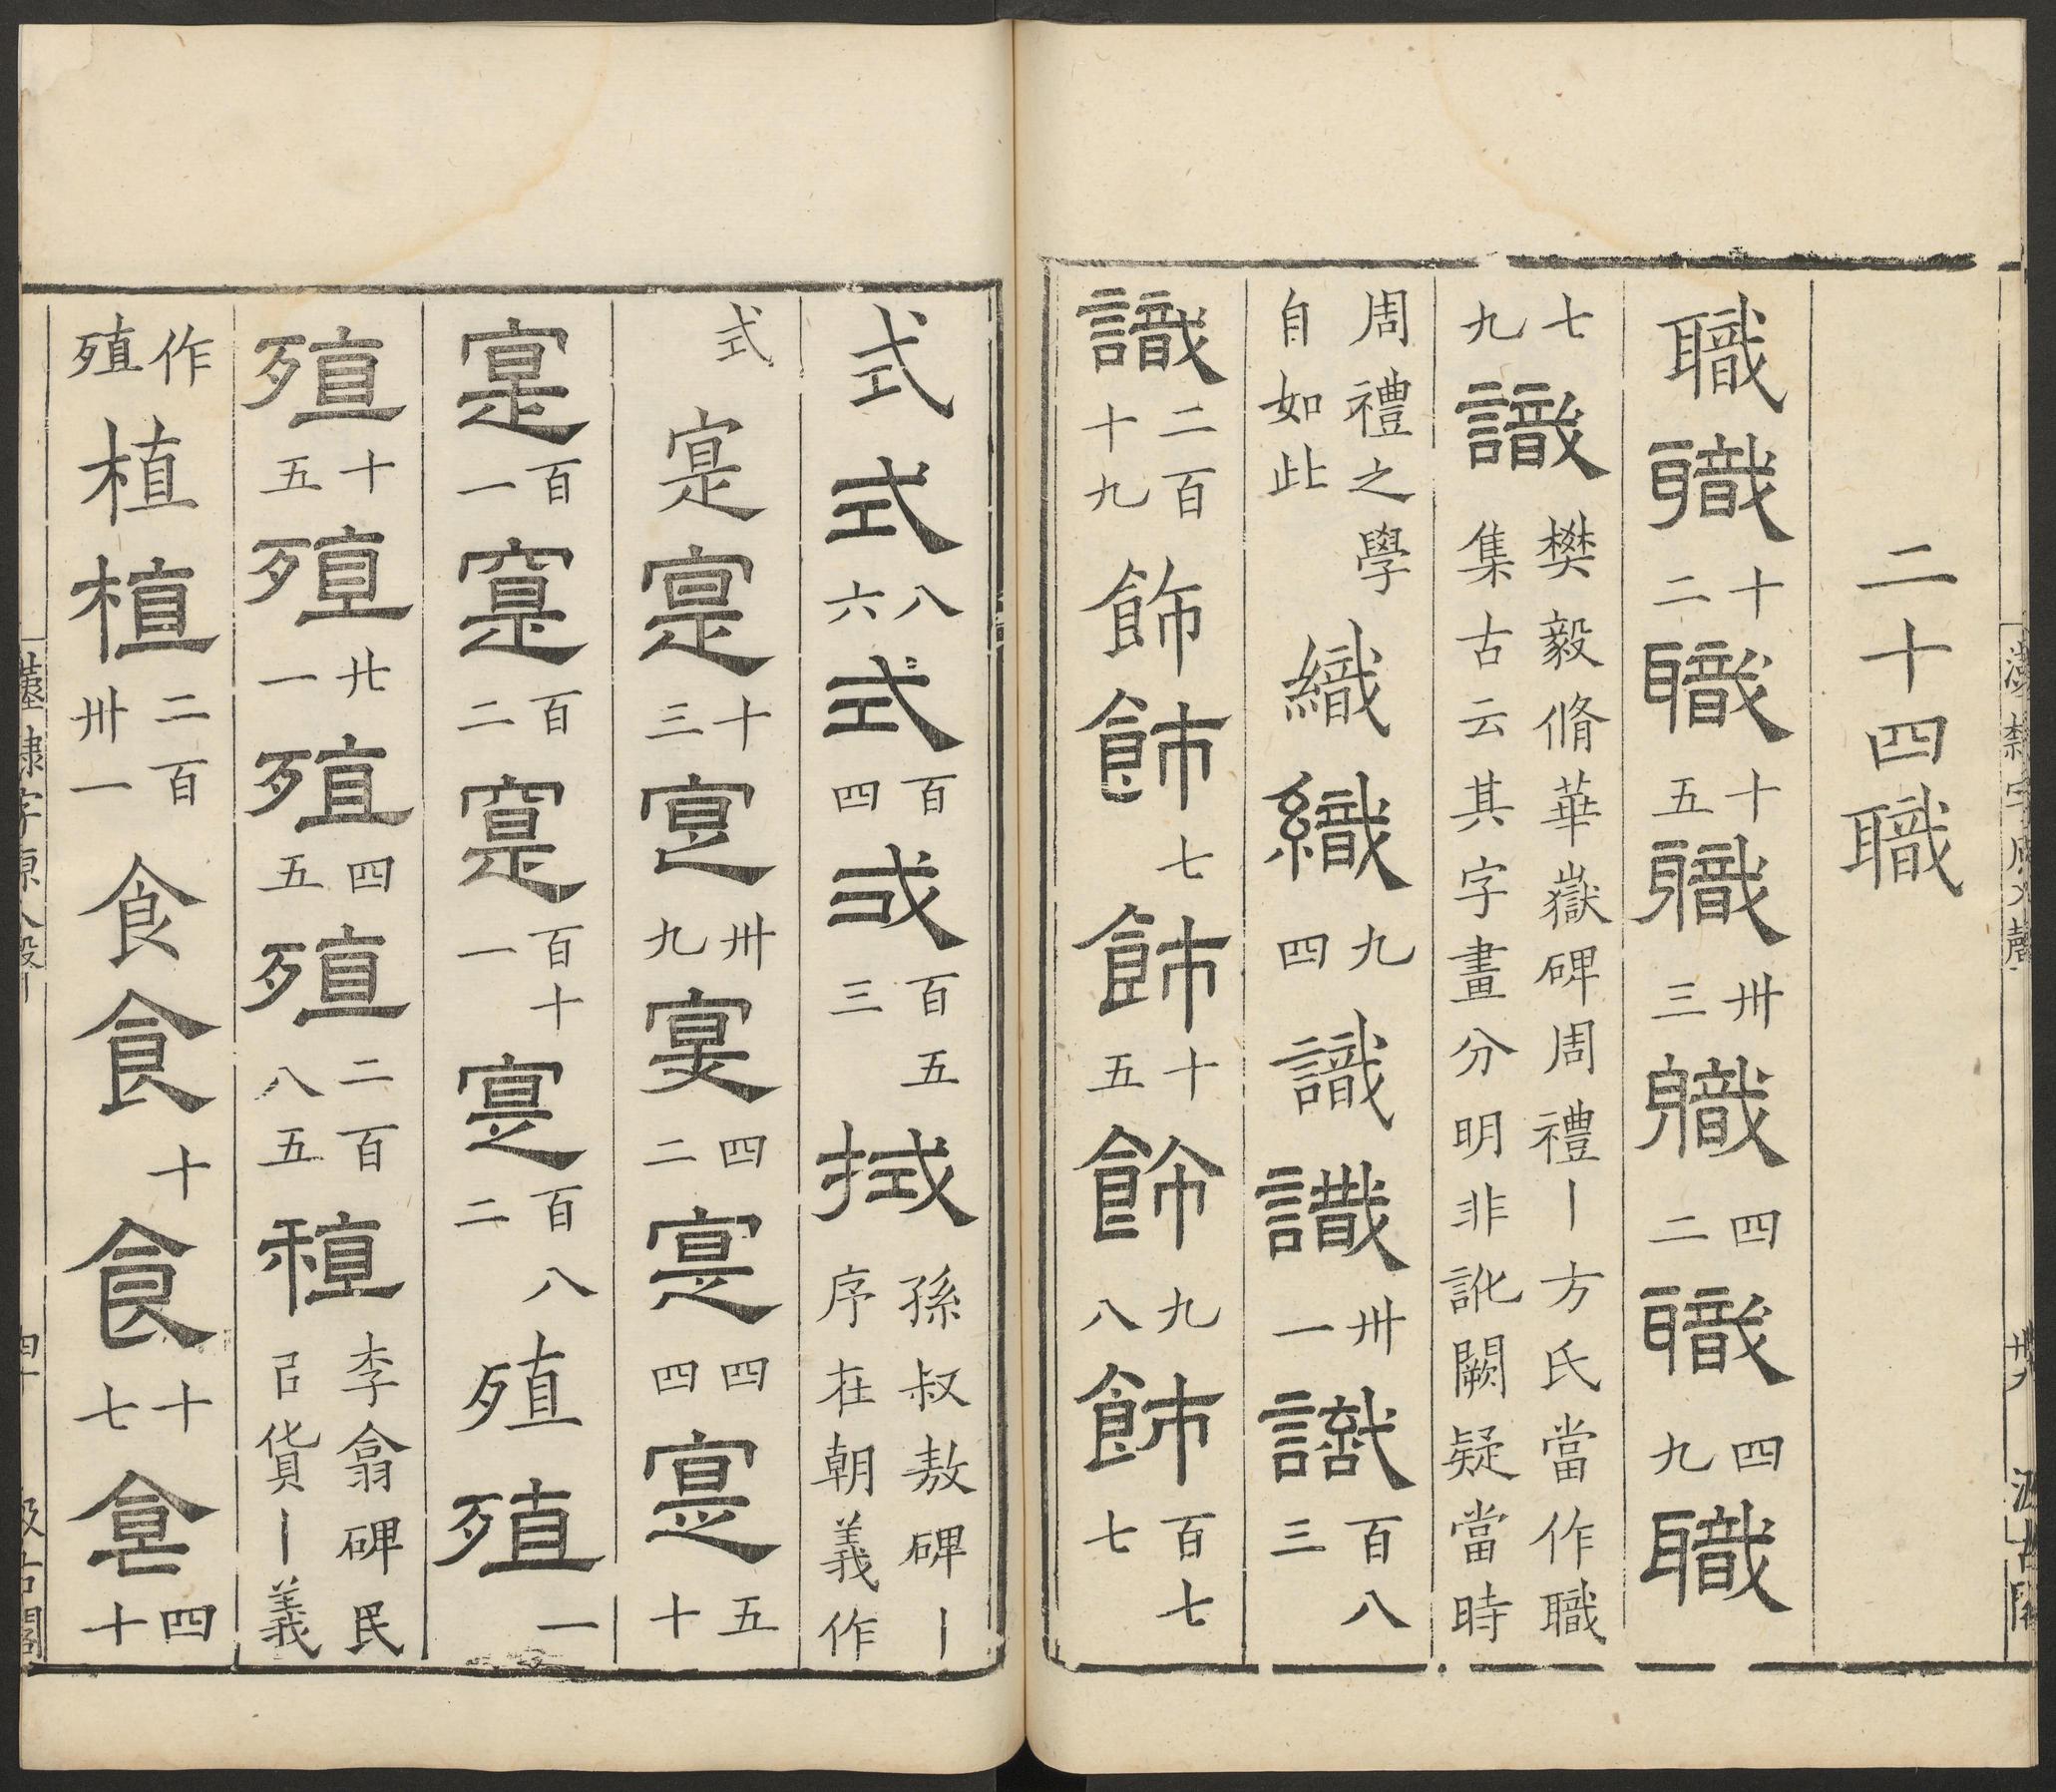 二十四職
職職十二職十五職卅三職四二職四九職
七九識樊毅脩華嶽碑周禮丨方氏當作職集古云其字畫分明非訛闕疑當時
周禮之學自如此織織九四識識卅一識百八三
識二百十九飾飾七飾十五飾九八飾百七七
式式八六式百四式百五三拭孫叔敖碑丨序在朝義作
式寔寔十三寔卅九寔四二寔四四寔五十
寔百一寔百二寔百十一寔百八二殖殖一
殖十五殖廿一殖四五殖二百八五稙李翕碑民㠯貨丨義
作殖植植二百卅一食食十食十七食四十